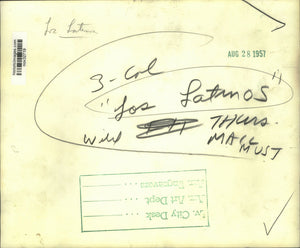 Los Latinos
AUG 28 1957
3-Col
"Los Latinos"
Wild THURS.
MAIL
MUST
Lv. City Desk ....
Lv. Art Dept ....
Lv. Engravers ....